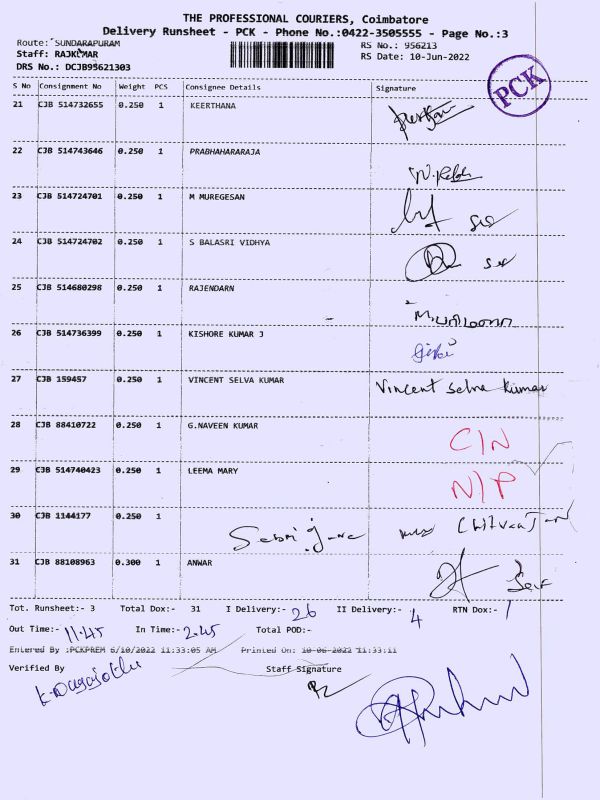 THE PROFESSIONAL COURIERS, Coimbatore
Delivery Runsheet - PCK - Phone No.:0422-3505555 - Page No.:3
Route: SUNDARAPURAM RS No.: 956213
Staff: RAJKUMAR RS Date: 10-Jun-2022
DRS No.: DCJB95621303
PCK
S No Consignment No Weight PCS Consignee Details Signature
21 CJB 514732655 0.250 1 KEERTHANA
22 CJB 514743646 0.250 1 PRABHAHARARAJA
23 CJB 514724701 0.250 1 M MUREGESAN
24 CJB 514724702 0.250 1 S BALASRI VIDHYA
25 CJB 514680298 0.250 1 RAJENDARN
26 CJB 514736399 0.250 1 KISHORE KUMAR J
27 CJB 159457 0.250 1 VINCENT SELVA KUMAR Vincent Selva Kumar
28 CJB 88410722 0.250 1 G.NAVEEN KUMAR C/N
29 CJB 514740423 0.250 1 LEEMA MARY N/P
30 CJB 1144177 0.250 1
31 CJB 88108963 0.300 1 ANWAR
Tot. Runsheet:- 3 Total Dox:- 31 I Delivery:- 26 II Delivery:- 4 RTN Dox:- 1
Out Time:- 11.45 In Time:- 2.45 Total POD:-
Entered By :PCKPREM 6/10/2022 11:33:05 AM Printed On: 10-06-2022 11:33:11
Verified By Staff Signature